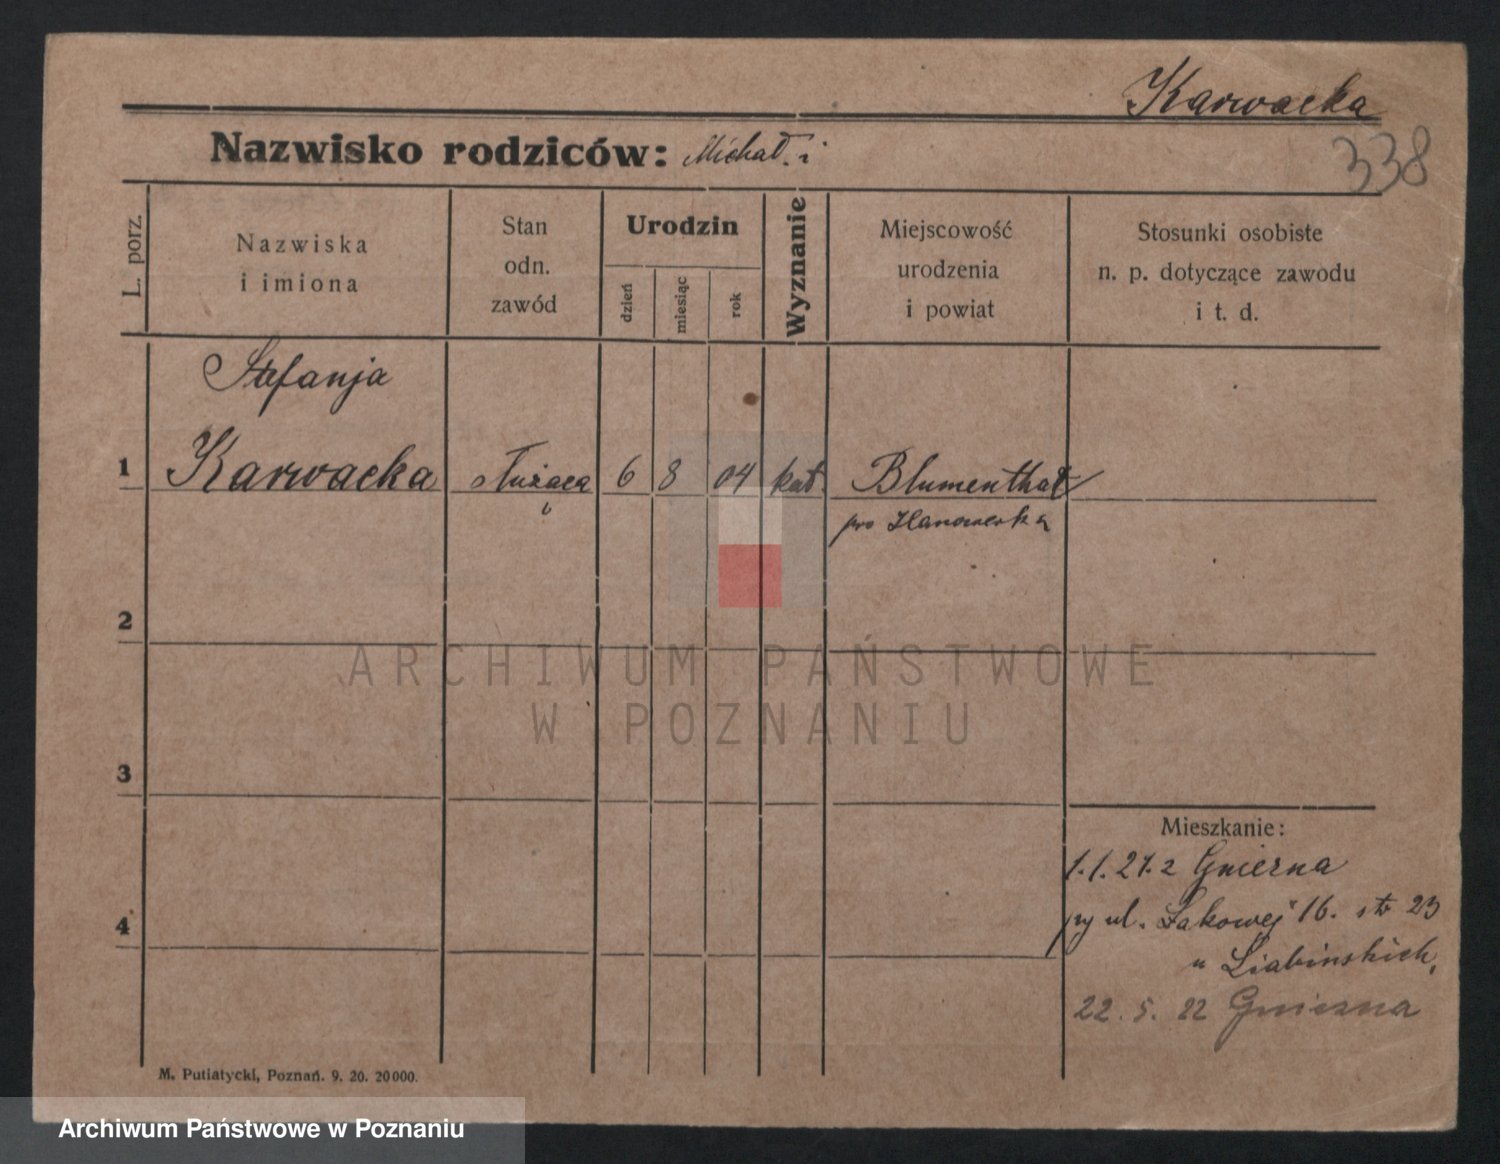 Karwacka
338
Nazwisko rodziców: Michał i
L. porz.
Nazwiska
i imiona
Stan
odn.
zawód
Urodzin
dzień
miesiąc
rok
Wyznanie
Miejscowość
urodzenia
i powiat
Stosunki osobiste
n. p. dotyczące zawodu
i t. d.
Stefanja
1 Karwacka służąca 6 8 04 kat. Blumenthal
Hanowerska
2
3
4
Mieszkanie:
1.1.21. z Gniezna
ul. Łąkowej 16. 23
u
22. 5. 22 Gniezna
M. Putiatycki, Poznań. 9. 20. 20000.
ARCHIWUM PAŃSTWOWE
W POZNANIU
Archiwum Państwowe w Poznaniu